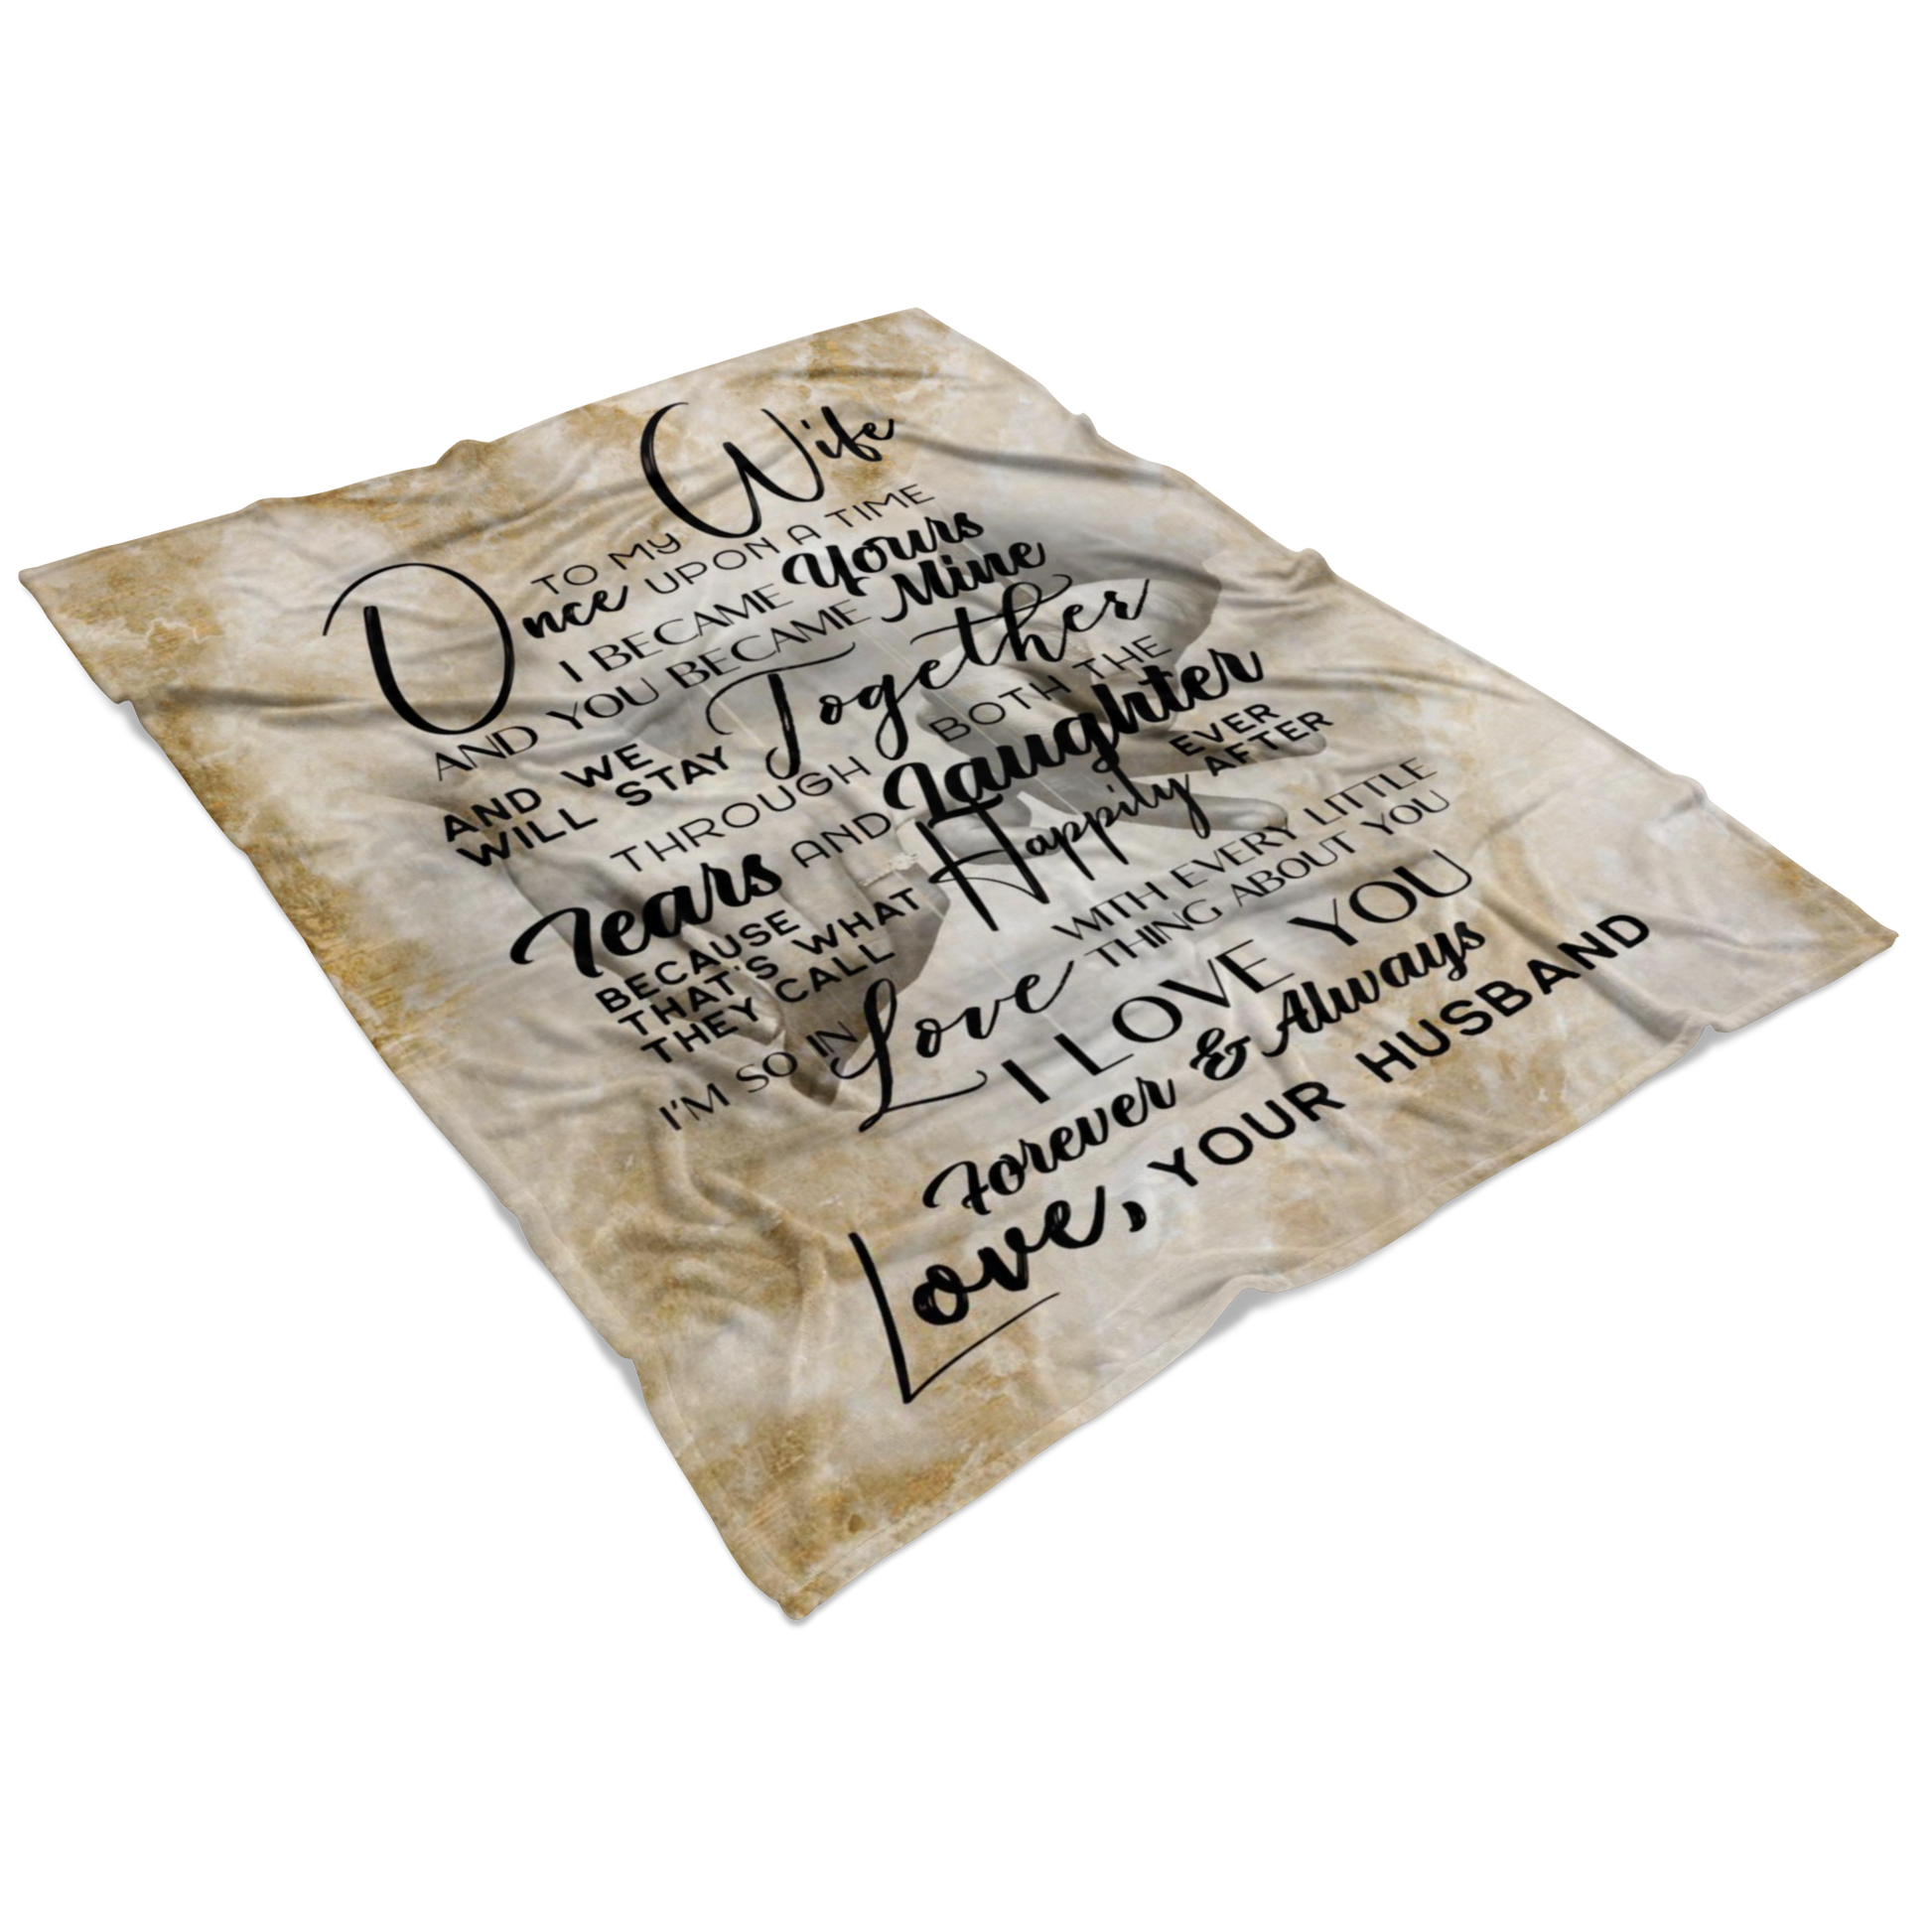 TO MY Wife
Once UPON A TIME
I BECAME Yours
AND YOU BECAME Mine
AND WE
WILL STAY Together
THROUGH BOTH THE
Tears AND Laughter
BECAUSE
THAT'S WHAT
THEY CALL Happily EVER
AFTER
I'M SO IN Love WITH EVERY LITTLE
THING ABOUT YOU
I LOVE YOU
Forever & Always
Love, YOUR HUSBAND